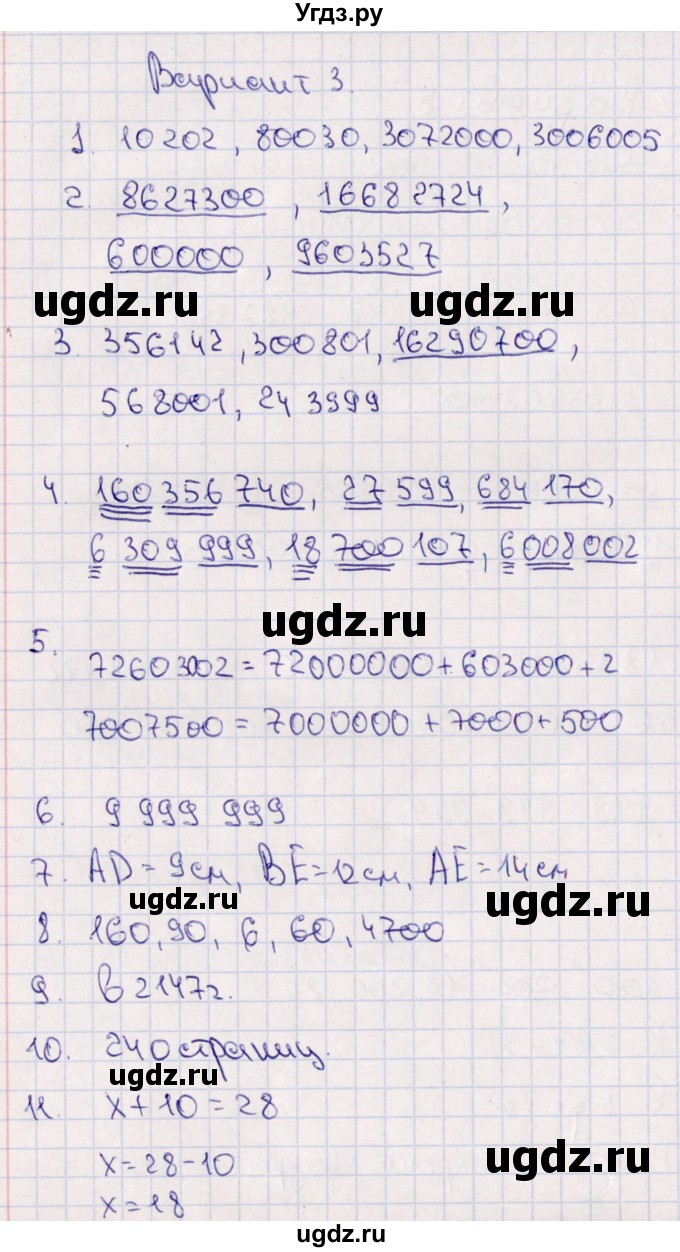 Угдз.ру
Вариант 3.
1. 10202, 80030, 3072000, 3006005
2. 8627300, 16682724,
600000, 9603527
ugdz.ru ugdz.ru
3. 356142, 300801, 16290700,
568001, 243999
4. 160 356 740, 27 599, 684 170,
6 309 999, 18 700 107, 6 008 002
ugdz.ru
5.
72603002 = 72000000 + 603000 + 2
7007500 = 7000000 + 7000 + 500
6. 9 999 999
7. AD = 9см, BE = 12см, AE = 14см
ugdz.ru ugdz.ru
8. 160, 90, 6, 60, 4700
9. в 2147г.
10. 240 страниц.
ugdz.ru
11. x + 10 = 28
x = 28 - 10
ugdz.ru
x = 18
ugdz.ru